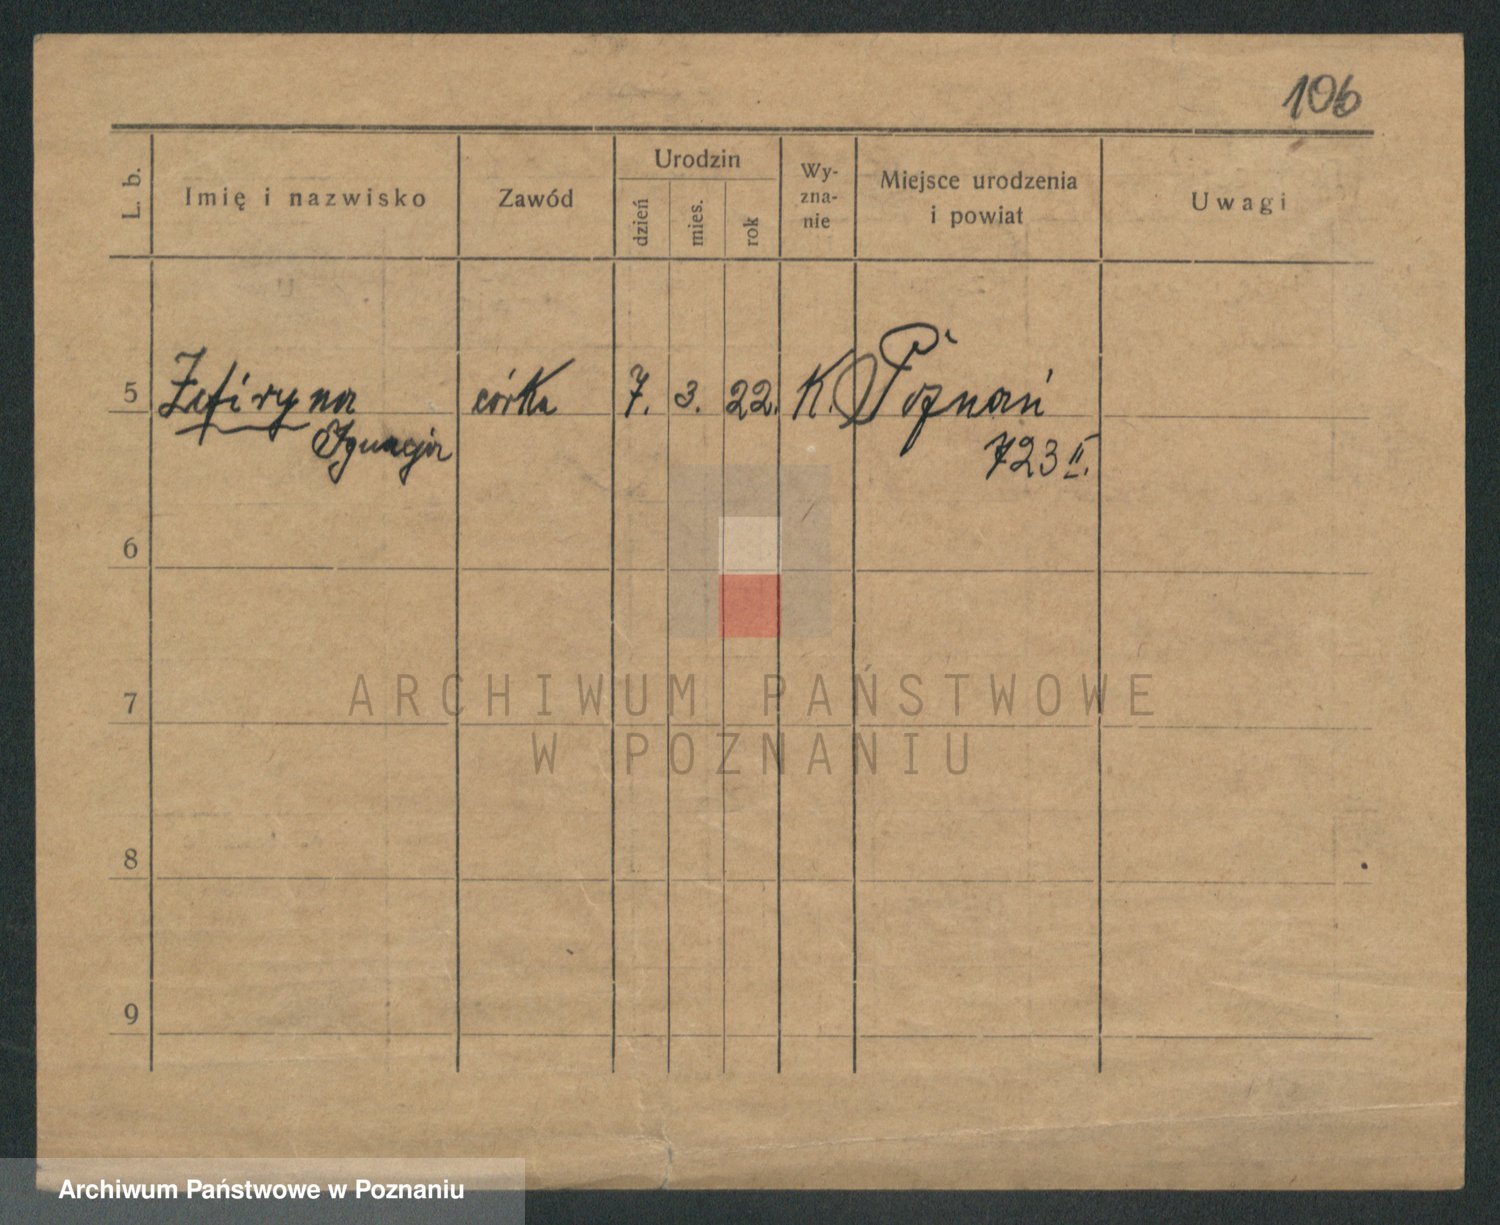 106
L. b.
Imię i nazwisko
Zawód
Urodzin
dzień
mies.
rok
Wy-
zna-
nie
Miejsce urodzenia
i powiat
Uwagi
5 Zefiryna córka 7. 3. 22. K. Poznań
Ignacja 723 II.
6
7
ARCHIWUM PAŃSTWOWE
W POZNANIU
8
9
Archiwum Państwowe w Poznaniu